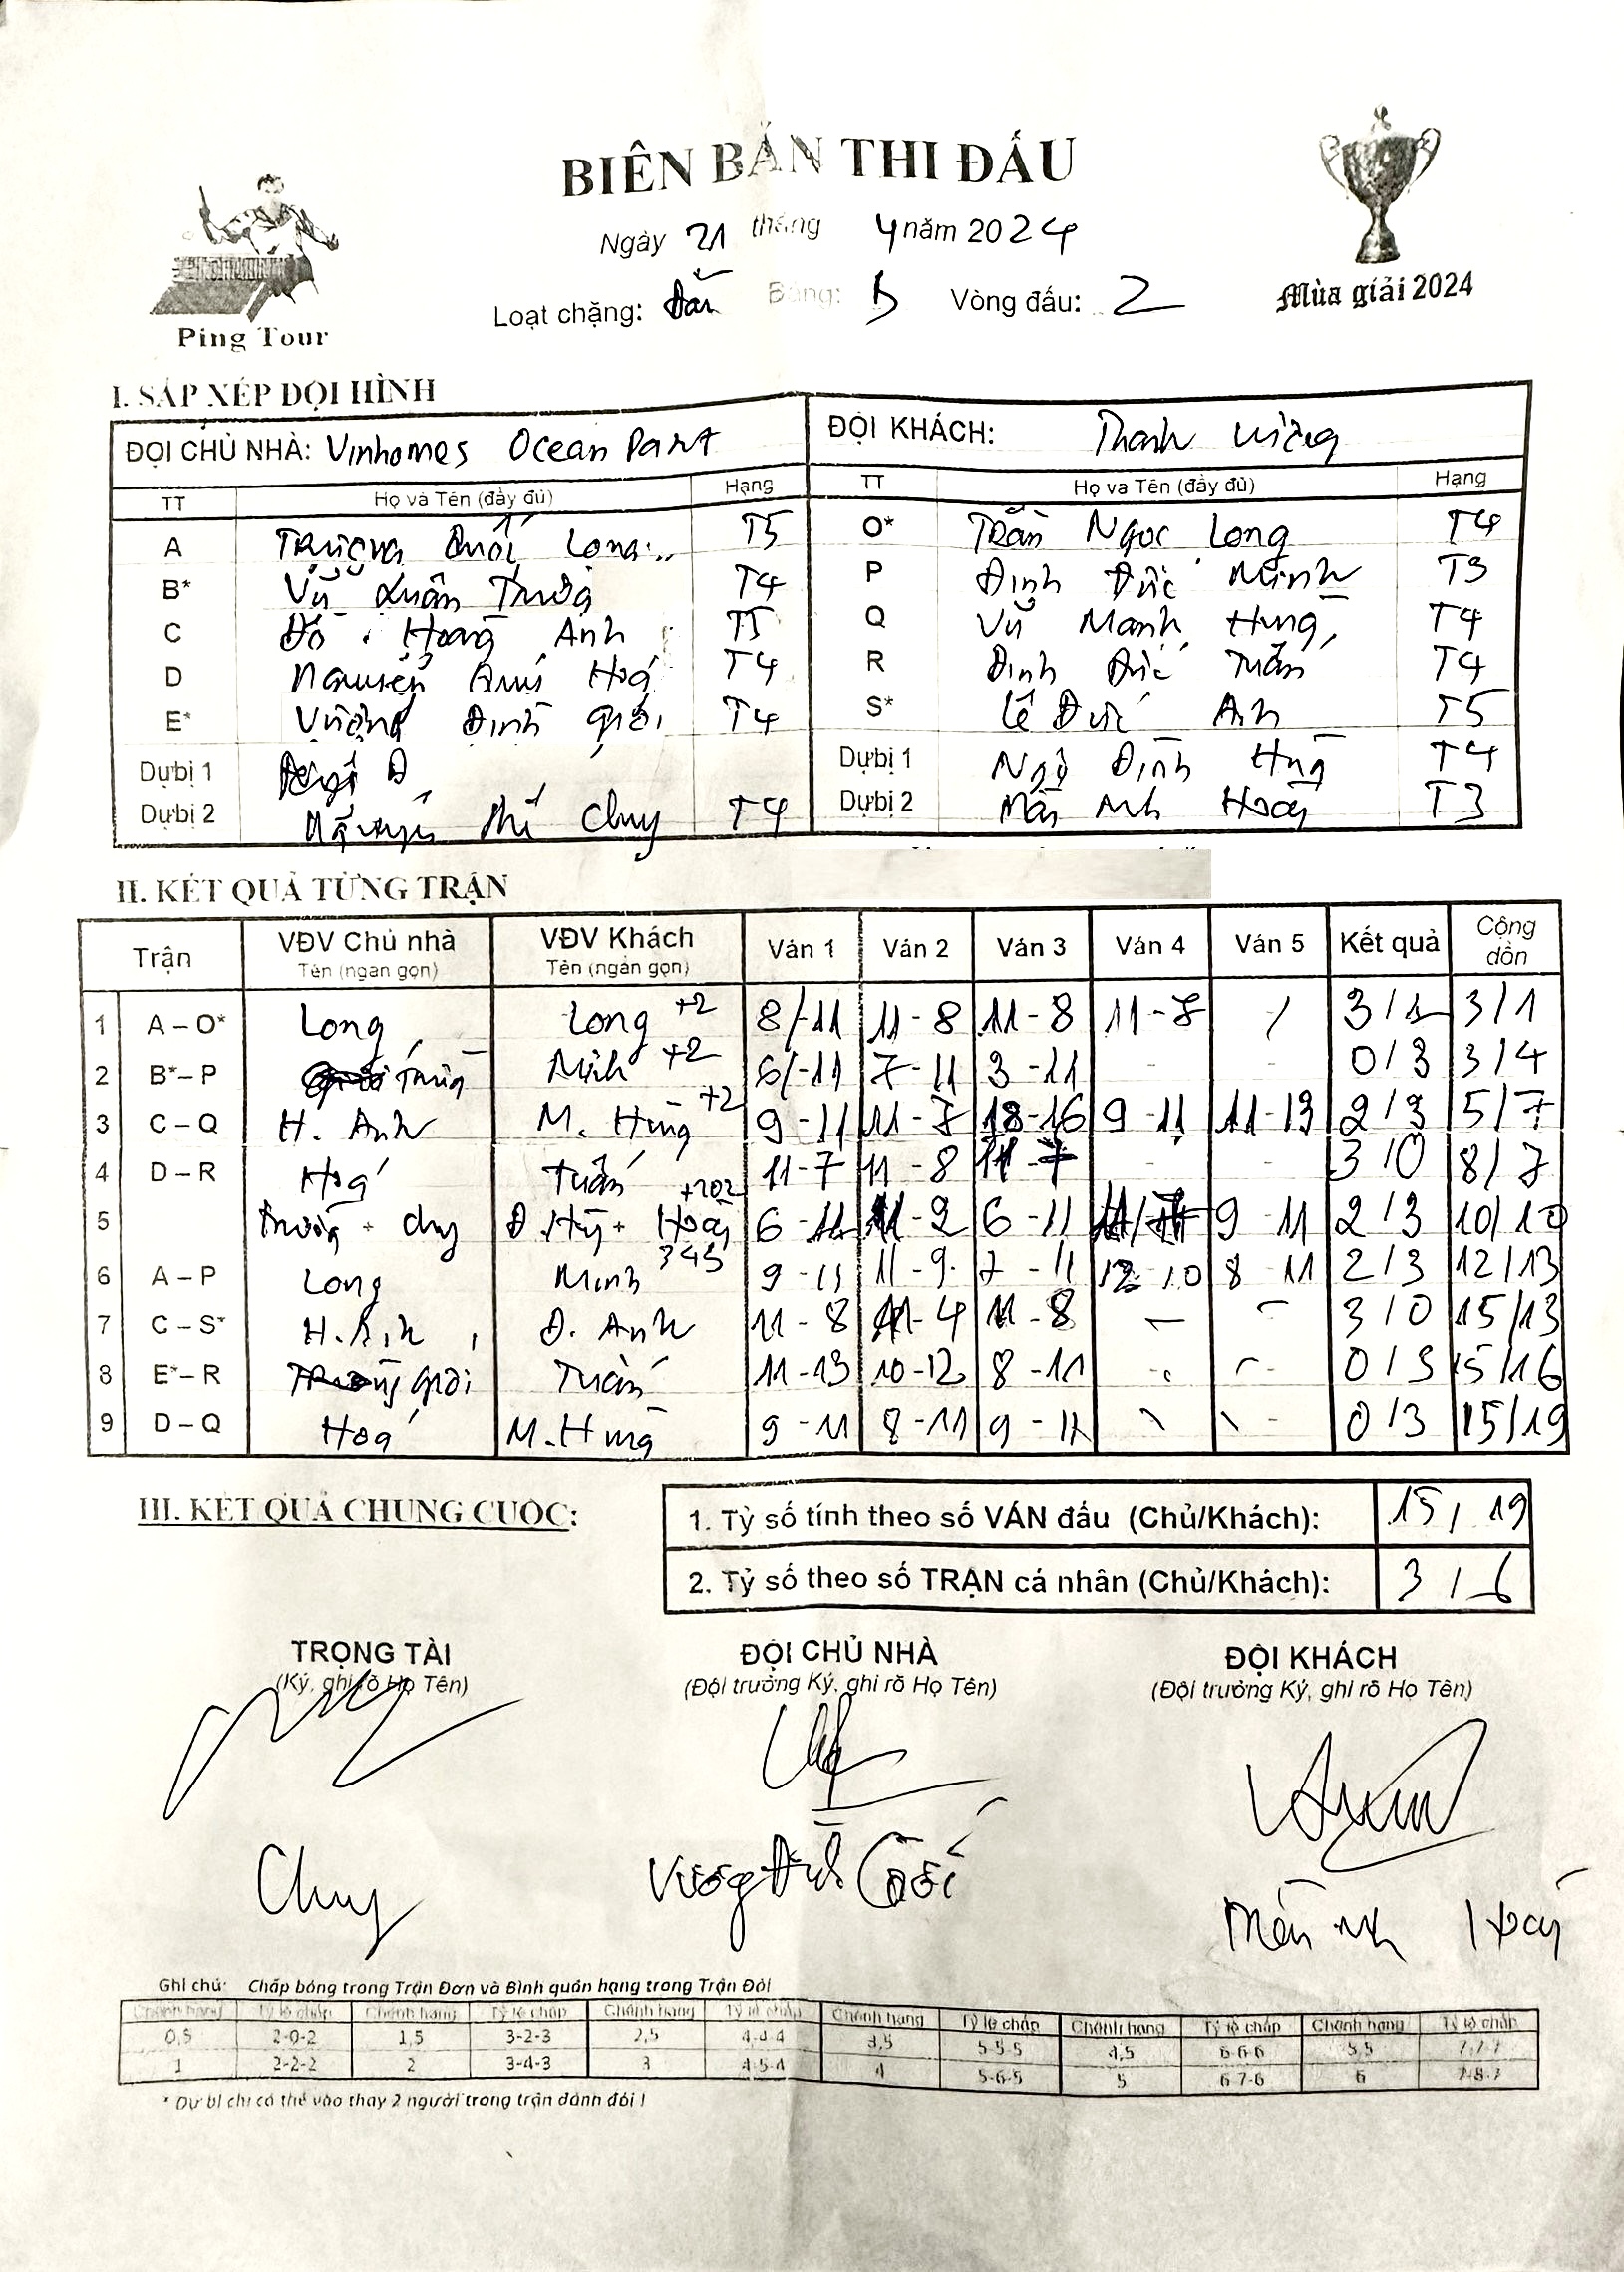 BIÊN BẢN THI ĐẤU
Ngày 21 tháng 4 năm 2024
Loạt chặng: Bảng: B Vòng đấu: 2
Ping Tour
Mùa giải 2024
I. SẮP XẾP ĐỘI HÌNH
ĐỘI CHỦ NHÀ: Vinhomes Ocean Park ĐỘI KHÁCH: Thanh Vương
TT Họ và Tên (đầy đủ) Hạng TT Họ và Tên (đầy đủ) Hạng
A Trương Quốc Long T5 O* Trần Ngọc Long T4
B* Vũ Xuân Trường T4 P Đinh Đức Minh T3
C Đỗ Hoàng Anh T5 Q Vũ Mạnh Hùng T4
D Nguyễn Quý Hoá T4 R Đinh Đức Tuấn T4
E* Vương Đình Giới T4 S* Lê Đức Anh T5
Dự bị 1 Dự bị 1 Ngô Đình Hùng T4
Dự bị 2 Nguyễn Thế Chuy T4 Dự bị 2 Mẫn Anh Hoàng T3
II. KẾT QUẢ TỪNG TRẬN
Trận VĐV Chủ nhà Tên (ngắn gọn) VĐV Khách Tên (ngắn gọn) Ván 1 Ván 2 Ván 3 Ván 4 Ván 5 Kết quả Cộng dồn
1 A – O* Long Long +2 8/-11 11-8 11-8 11-8 / 3/1 3/1
2 B* – P Trường Minh +2 6/-11 7-11 3-11 - - 0/3 3/4
3 C – Q H. Anh M. Hùng +2 9-11 11-7 18-16 9-11 11-13 2/3 5/7
4 D – R Hoá Tuấn 11-7 11-8 11-7 - - 3/0 8/7
5 Trường + Chuy Đ. Hùng + Hoàng +202 6-11 11-2 6-11 9-11 2/3 10/10
6 A – P Long Minh 343 9-11 11-9 7-11 12-10 8-11 2/3 12/13
7 C – S* H. Anh Đ. Anh 11-8 11-4 11-8 - - 3/0 15/13
8 E* – R Giới Tuấn 11-13 10-12 8-11 - - 0/3 15/16
9 D – Q Hoá M. Hùng 9-11 8-11 9-11 \ \ - 0/3 15/19
III. KẾT QUẢ CHUNG CUỘC:
1. Tỷ số tính theo số VÁN đấu (Chủ/Khách): 15/19
2. Tỷ số theo số TRẬN cá nhân (Chủ/Khách): 3/6
TRỌNG TÀI ĐỘI CHỦ NHÀ ĐỘI KHÁCH
(Ký, ghi rõ Họ Tên) (Đội trưởng Ký, ghi rõ Họ Tên) (Đội trưởng Ký, ghi rõ Họ Tên)
Chuy Vương Đình Giới Mẫn Anh Hoàng
Ghi chú: Chấp bóng trong Trận Đơn và Bình quân hạng trong Trận Đôi
Chênh hạng Tỷ lệ chấp Chênh hạng Tỷ lệ chấp Chênh hạng Tỷ lệ chấp Chênh hạng Tỷ lệ chấp Chênh hạng Tỷ lệ chấp Chênh hạng Tỷ lệ chấp
0,5 2-0-2 1,5 3-2-3 2,5 4-4-4 3,5 5-5-5 4,5 6-6-6 5,5 7-7-7
1 2-2-2 2 3-4-3 3 4-5-4 4 5-6-5 5 6-7-6 6 7-8-7
* Dự bị chỉ có thể vào thay 2 người trong trận đánh đôi !